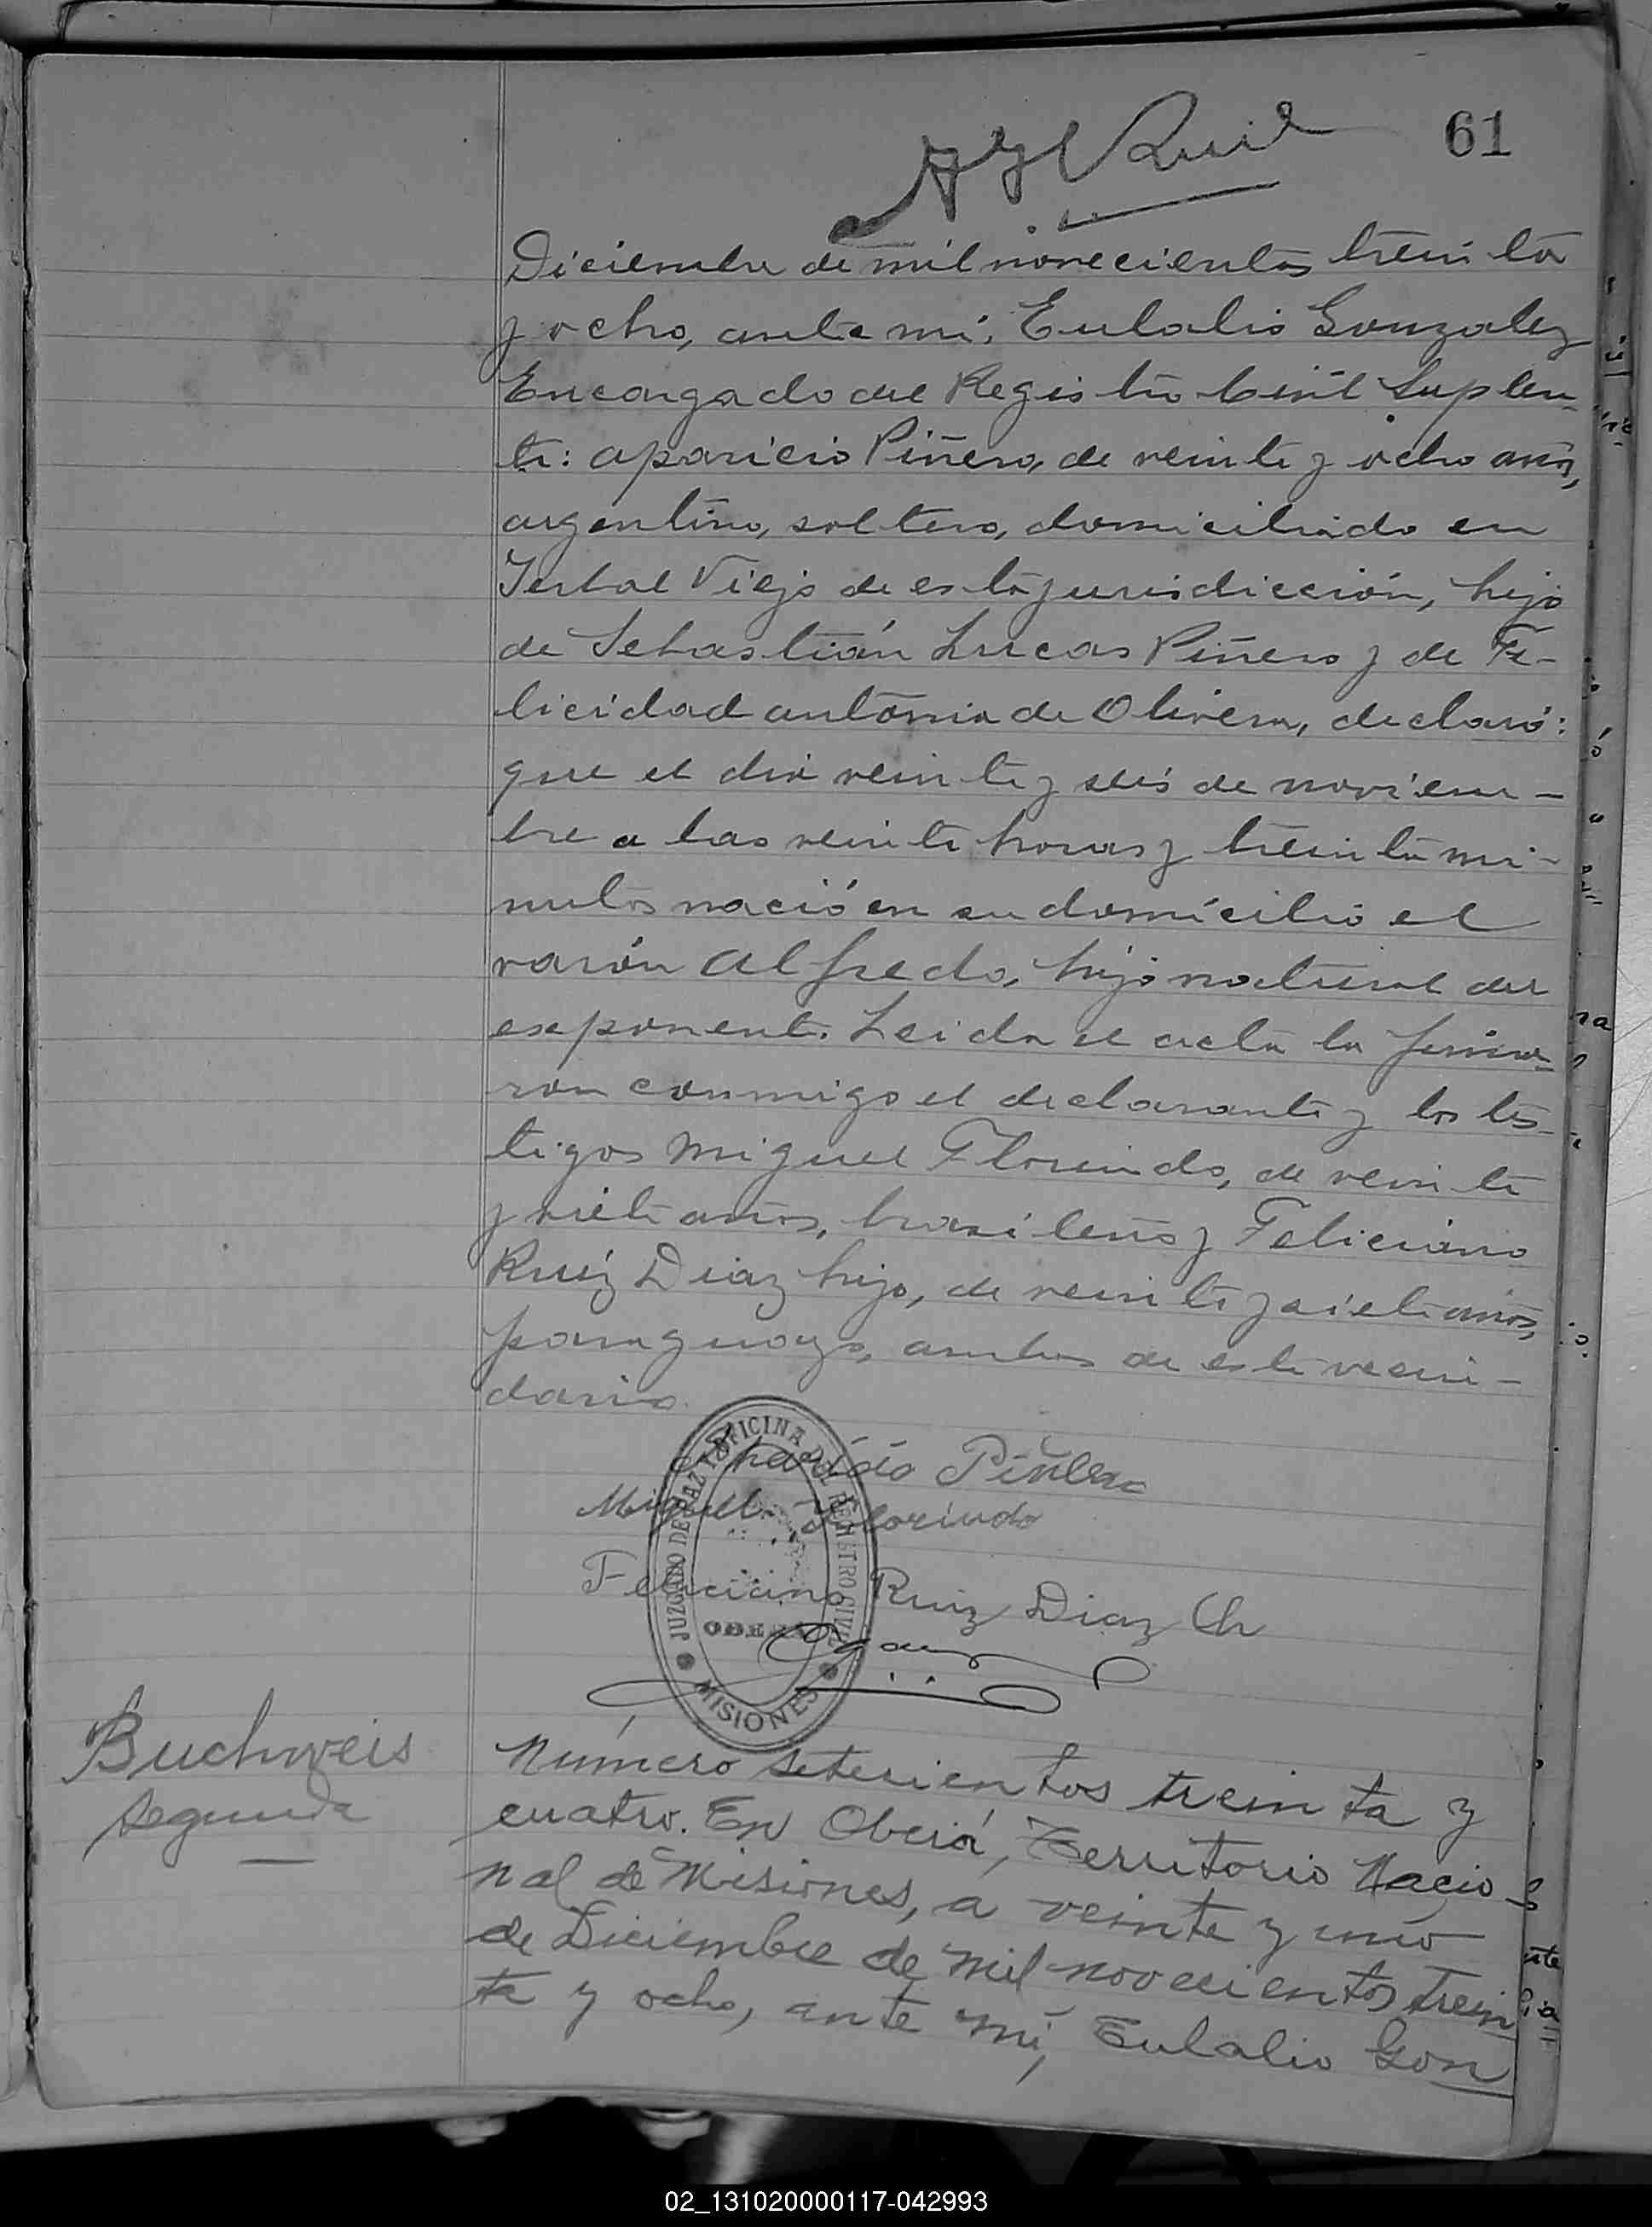 61
Diciembre de mil novecientos treinta
y ocho, ante mi, Eulalio Gonzalez
Encargado del Registro Civil Suplen-
te: Aparicio Piñero, de veinte y ocho años,
argentino, soltero, domiciliado en
Yerbal Viejo de esta jurisdicción, hijo
de Sebastián Lucas Piñero y de Fe-
licidad Antonia de Olivera, declaró:
que el dia veinte y seis de noviem-
bre a las veinte horas y treinta mi-
nutos nació en su domicilio el
varón Alfredo, hijo natural del
exponente. Leida el acta la firma-
ron conmigo el declarante y los tes-
tigos Miguel Florindo, de veinte
y siete años, brasileño y Feliciano
Ruiz Diaz hijo, de veinte y siete años,
paraguayo, ambos de este vecin-
dario.
Aparisio Piñero
Miguel Florindo
Feliciano Ruiz Diaz (h
JUZGADO DE PAZ Y OFICINA DEL REGISTRO CIVIL
OBERA
MISIONES
Buchweis
Segunda
Número setecientos treinta y
cuatro. En Oberá, Territorio Nacio-
nal de Misiones, a veinte y uno
de Diciembre de mil novecientos trein
ta y ocho, ante mí, Eulalio Gon
02_131020000117-042993